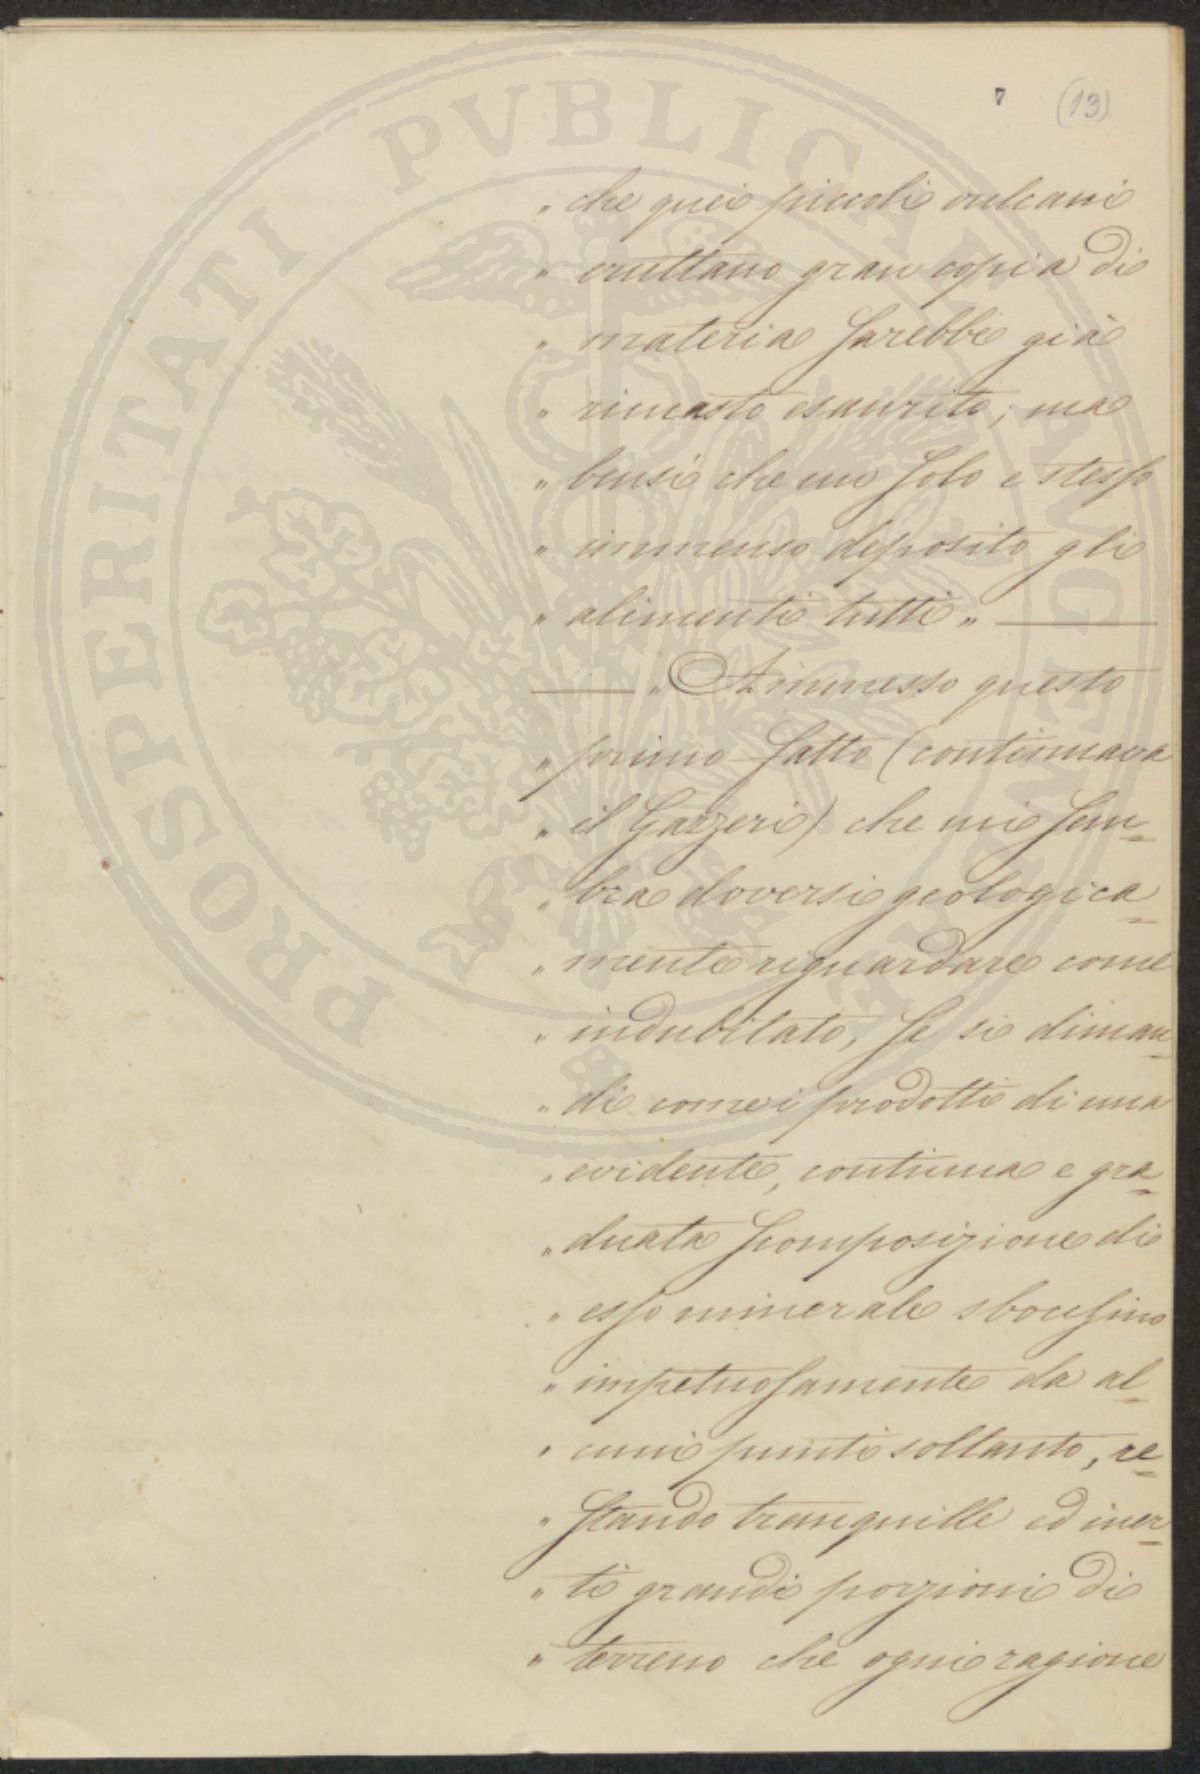 7 (13)
„ che quei piccoli vulcani
„ eruttano gran copia di
„ materia sarebbe già
„ rimasto esaurito; ma
„ bensì che un solo e stesso
„ immenso deposito gli
„ alimenti tutti „ ———
——— „ Ammesso questo
„ primo fatto (continuava
„ il Gazzeri) che mi sem=
„ bra doversi geologica=
„ mente riguardare come
„ indubitato, se si diman=
„ di come i prodotti di una
„ evidente, continua e gra=
„ duata scomposizione di
„ esso minerale sbocchino
„ impetuosamente da al=
„ cuni punti soltanto, re=
„ stando tranquille ed iner=
„ ti grandi porzioni di
„ terreno che ogni ragione
PROSPERITATI PVBLICAE AVGENDAE